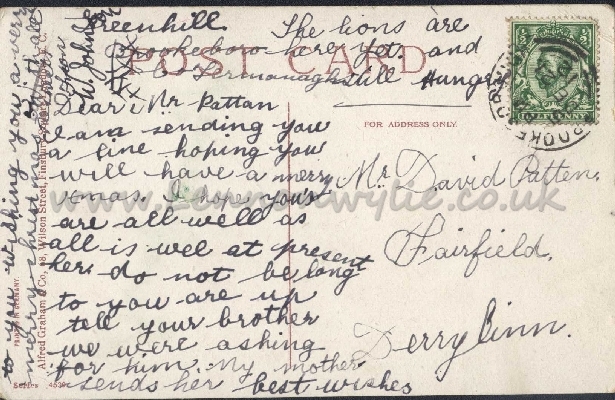 Greenhill
Brookeboro
Co Fermanagh
Dear Mr Pattan
I am sending you
a line hoping you
will have a merry
xmas. I hope you's
are all well as
all is wel at present
her do not be long
to you are up
tell your brother
we were asking
for him. My mother
sends her best wishes
to you wishing you a very
merry christmas
The lions are
here yet. and
still Hungry
POST CARD
FOR ADDRESS ONLY.
Mr David Patten
Fairfield.
Derrylinn.
HALFPENNY
Alfred Graham & Co, 68, Wilson Street, Finsbury
Series
www.wylie.co.uk